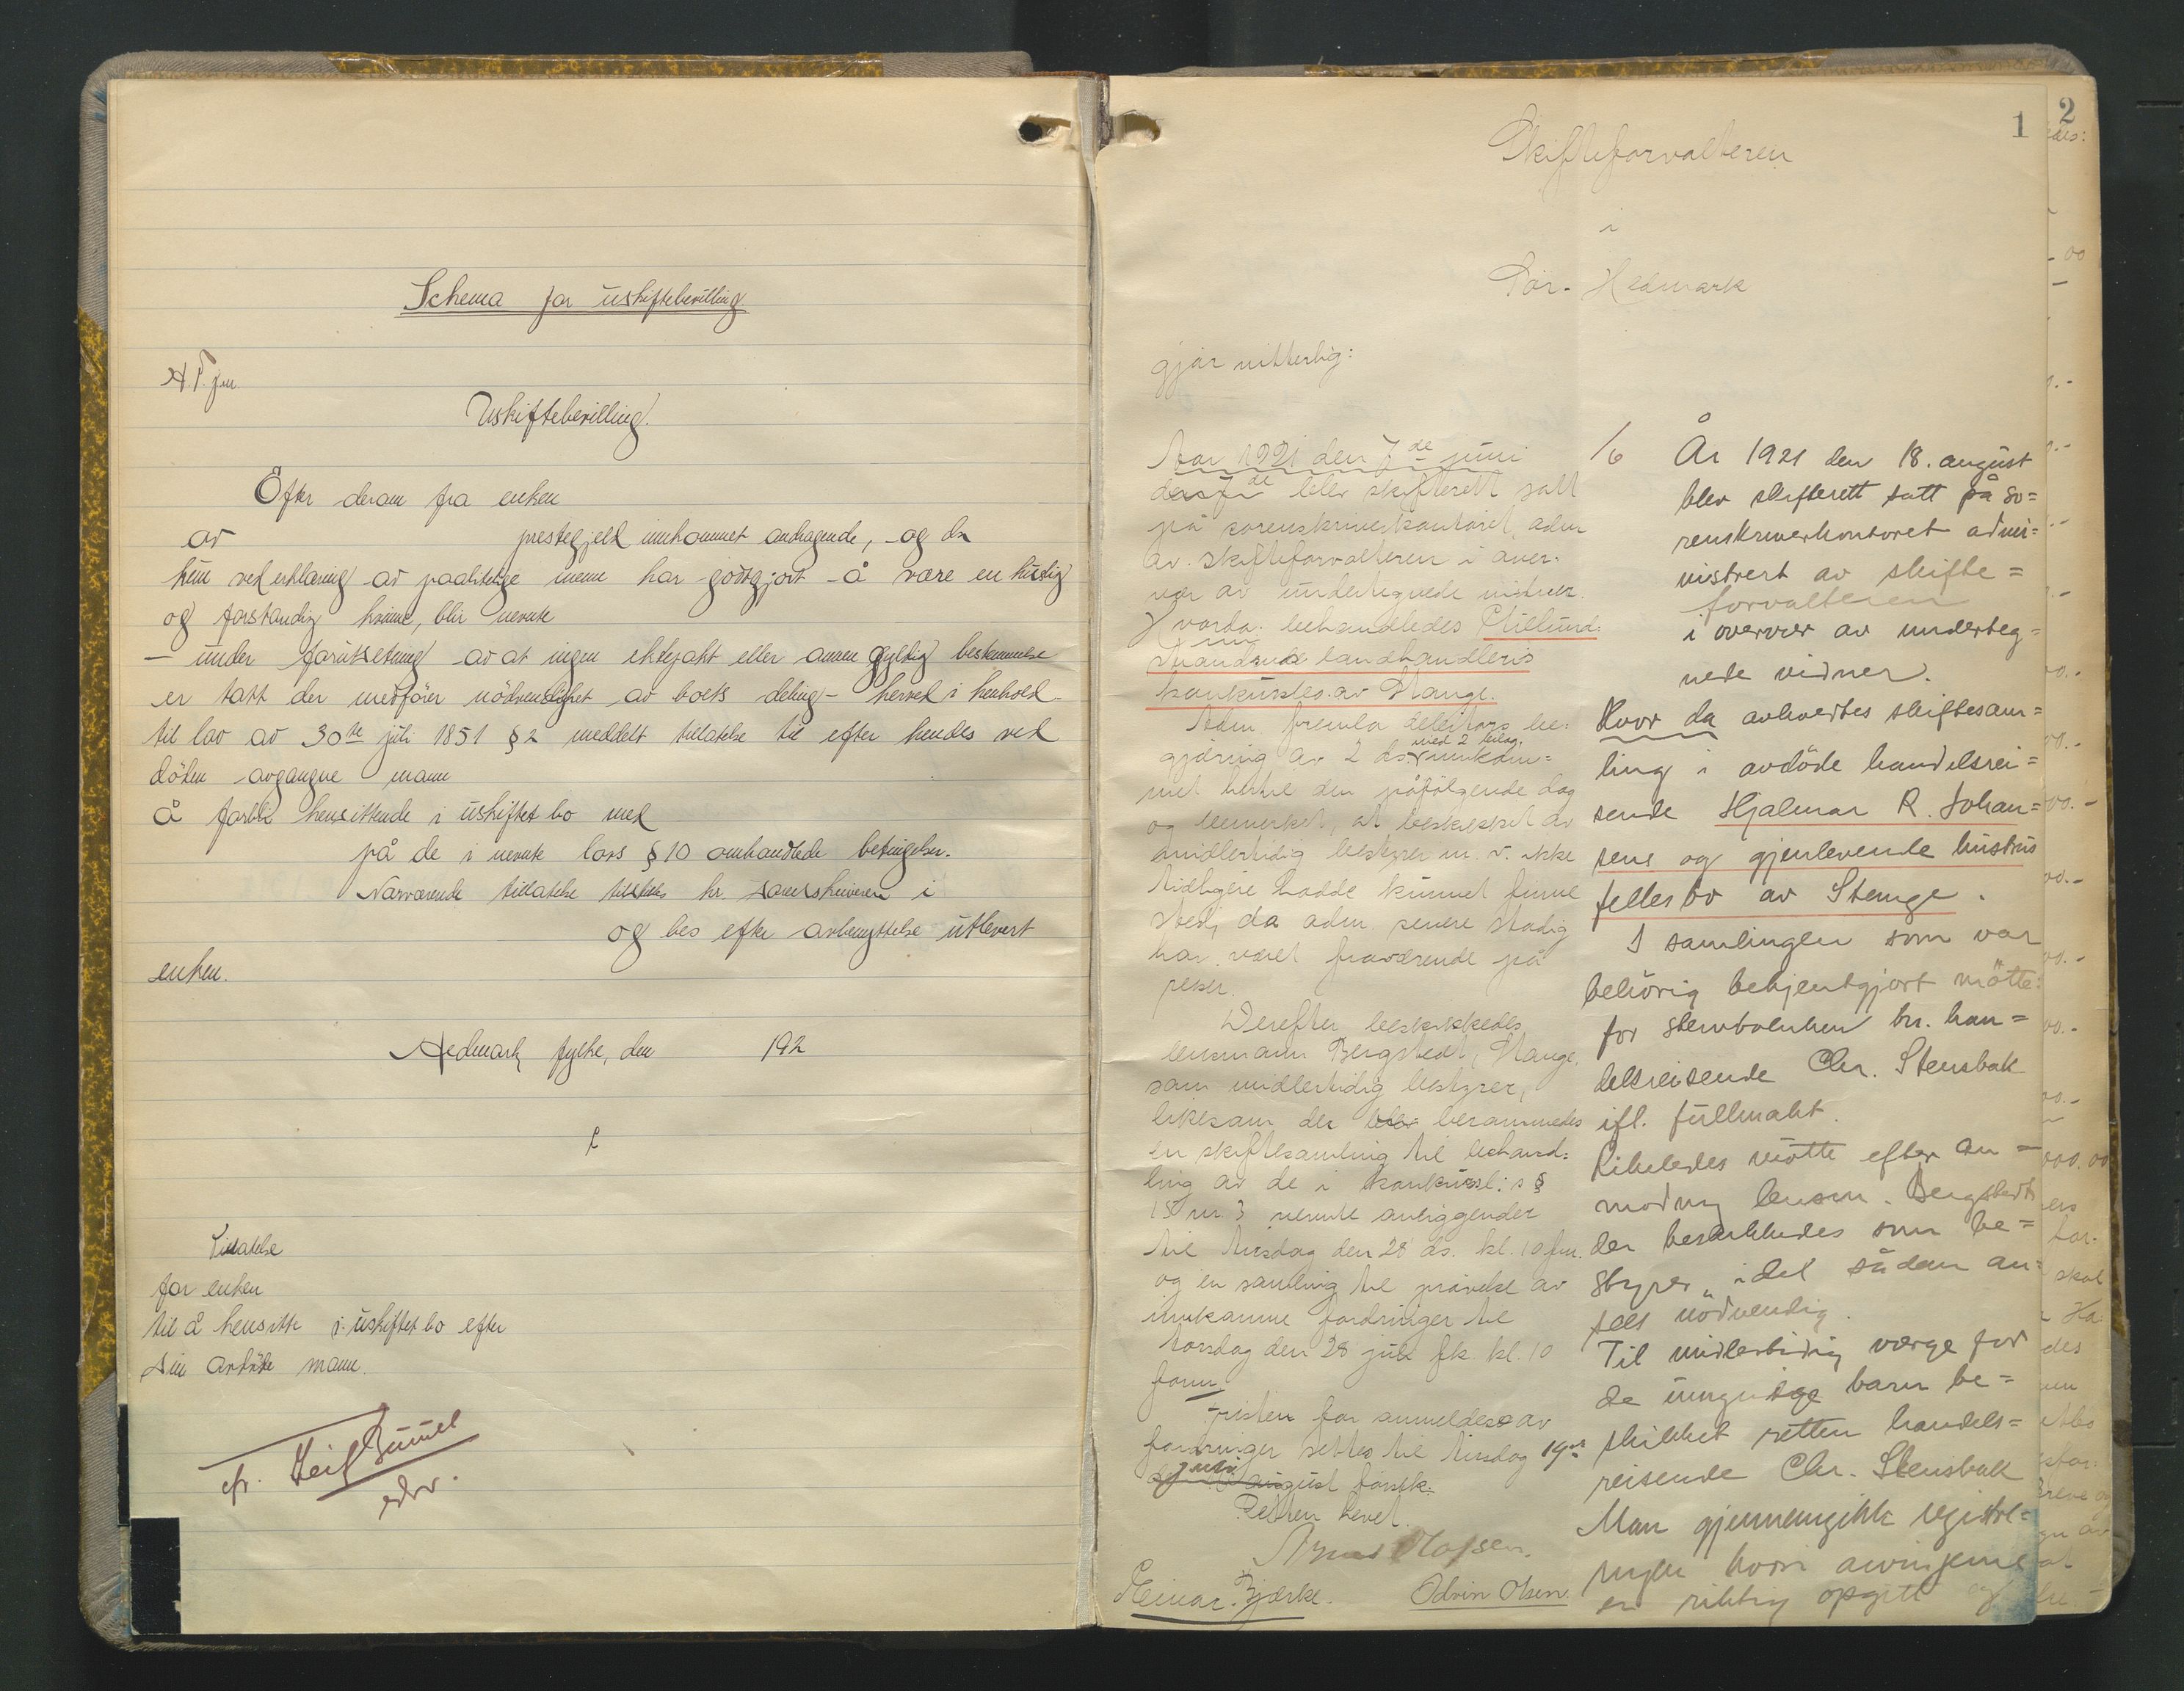 Schema for uskiftebevilling.
A.T. jnr.
Uskiftebevilling.
Efter derom fra enken
av prestegjeld innkommet andragende, og da
hun ved erklæring av paalitelige menn har godtgjort å være en husdig
og forstandig kvinne, blir nevnte
- under forutsetning av at ingen ektepakt eller annen gyldig bestemmelse
er tatt der medfører nödvendighet av boets deling - herved i henhold
til lov av 30te juli 1851 § 2 meddelt tillatelse til efter hendes ved
döden avgangne mann
å forbli hensittende i uskiftet bo med
på de i nevnte lovs § 10 omhandlede betingelser.
Nærværende tillatelse tilstilles hr. sorenskriveren i
og bes efter avbenyttelse utlevert
enken.
Hedmark fylke, den 192
Tillatelse
for enken
til å hensitte i uskiftet bo efter
sin avdöde mann.
1
2
Skifteforvalteren
i
Sör-Hedmark
gjör vitterlig:
Aar 1921 den 7de juni
blev skifterett satt
på sorenskriverkontoret, adm
av skifteforvalteren i over-
vær av undertegnede vidner.
Hvorda behandledes
landhandleris
konkursbo av Stange.
Adm. fremla debitors be-
gjæring av 2 ds. med 2 bilag, innkom-
met hertil den påfölgende dag
og bemerket, at beskikket av
midlertidig bestyrer m. v. ikke
tidligere hadde kunnet finne
sted, da adm senere stadig
har været fraværende på
reiser.
Derefter beskikkedes
lensmann Bergstedt, Stange,
som midlertidig bestyrer,
likesom der blev berammedes
en skiftesamling til behand-
ling av de i konkursl:s §
15 nr. 3 nevnte anliggender
til tirsdag den 28 ds. kl. 10 fm.
og en samling til prövelse av
innkomne fordringer til
torsdag den 28 juli fk. kl. 10
form.
Fristen for anmeldese av
fordringer settes til tirsdag 19de
juli august förstk.
Retten hevet.
Einar Bjærke. Odvin Olsen.
1/6 År 1921 den 18. august
blev skifterett satt på so=
renskriverkontoret admi=
nistrert av skifte=
forvalteren
i overvær av underteg=
nede vidner.
Hvor da avholdtes skiftesam=
ling i avdöde handelsrei=
sende Hjalmar R. Johan=
sens og gjenlevende hustrus
fellesbo av Stange.
I samlingen som var
behörig bekjentgjort mötte:
for stervboenken hr. han=
delsreisende Chr. Stensbak
ifl. fullmakt.
Likeledes mötte efter an=
modning lensm. Bergstedt
der beskikkedes som be=
styrer, idet sådan an=
sees nödvendig.
Til midlertidig værge for
de umyndige barn be=
skikket retten handels=
reisende Chr. Stensbak
Man gjennemgikk registre=
ringen hvori arvingerne
er riktig opgitt og